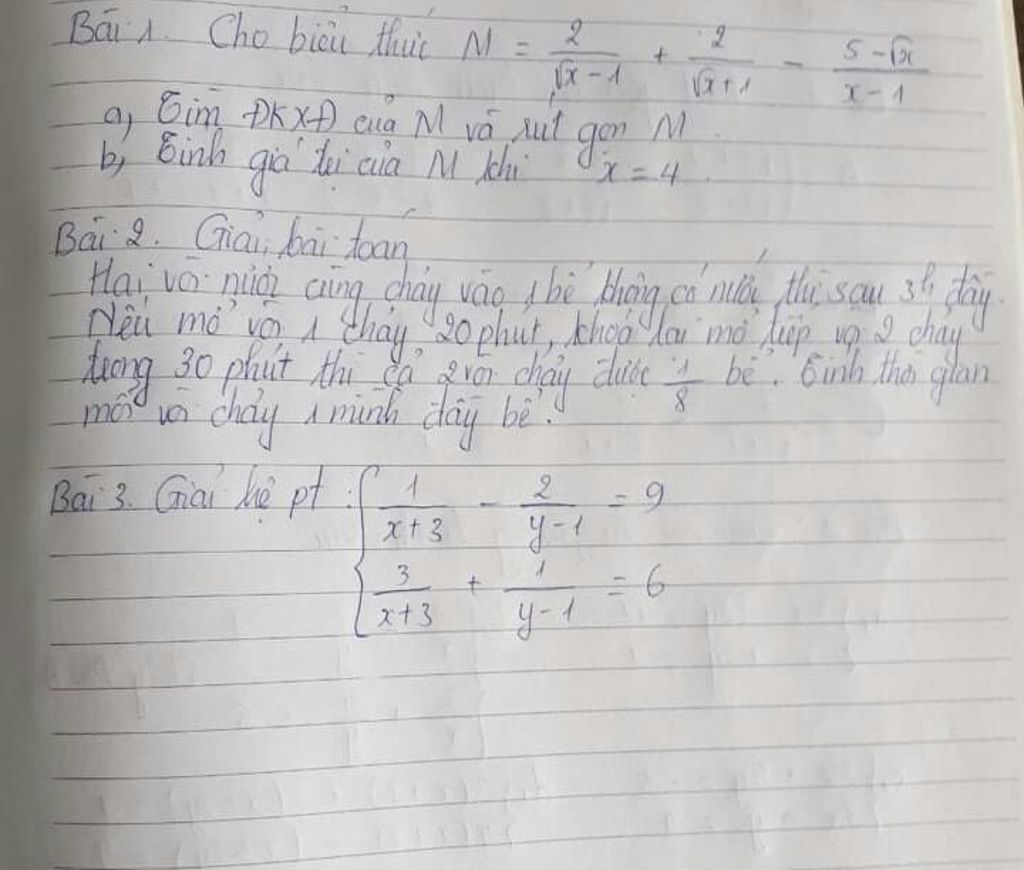 Bài 1. Cho biểu thức M = 2/(√x - 1) + 2/(√x + 1) - (5 - √x)/(x - 1)
a, Tìm ĐKXĐ của M và rút gọn M.
b, Tính giá trị của M khi x = 4.
Bài 2. Giải bài toán
Hai vòi nước cùng chảy vào 1 bể không có nước thì sau 3h đầy.
Nếu mở vòi 1 chảy 20 phút, khoá lại mở tiếp vòi 2 chảy
trong 30 phút thì cả 2 vòi chảy được 1/8 bể. Tính thời gian
mỗi vòi chảy 1 mình đầy bể.
Bài 3. Giải hệ pt : { 1/(x+3) - 2/(y-1) = 9
3/(x+3) + 1/(y-1) = 6